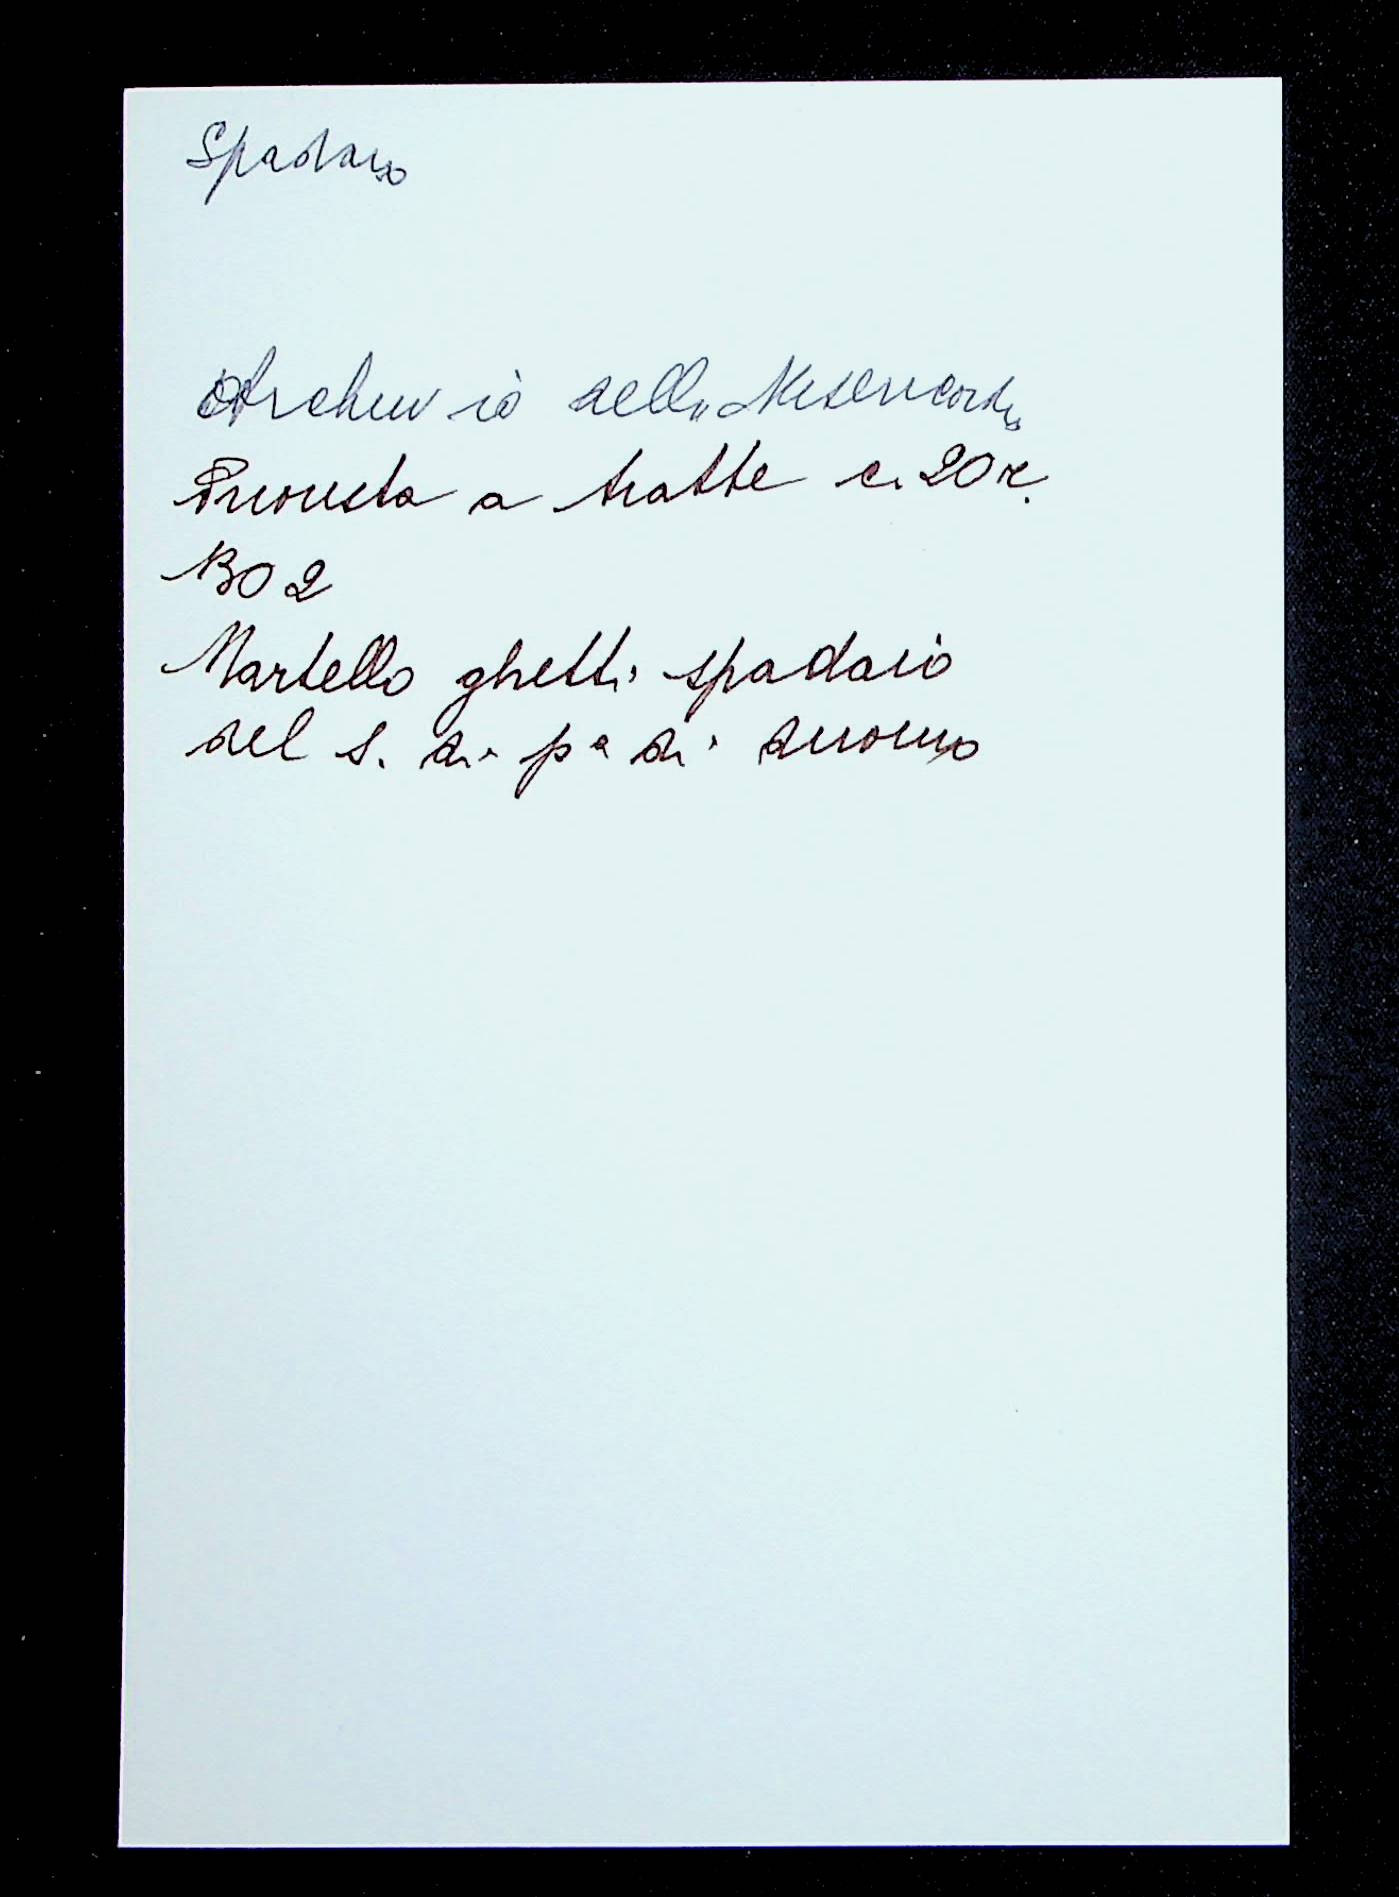 Spadaio
Archivio della Misericordia
Prioristo a tratte c. 20 r.
1302
Martello ghetti spadaio
del s. di pª di duomo